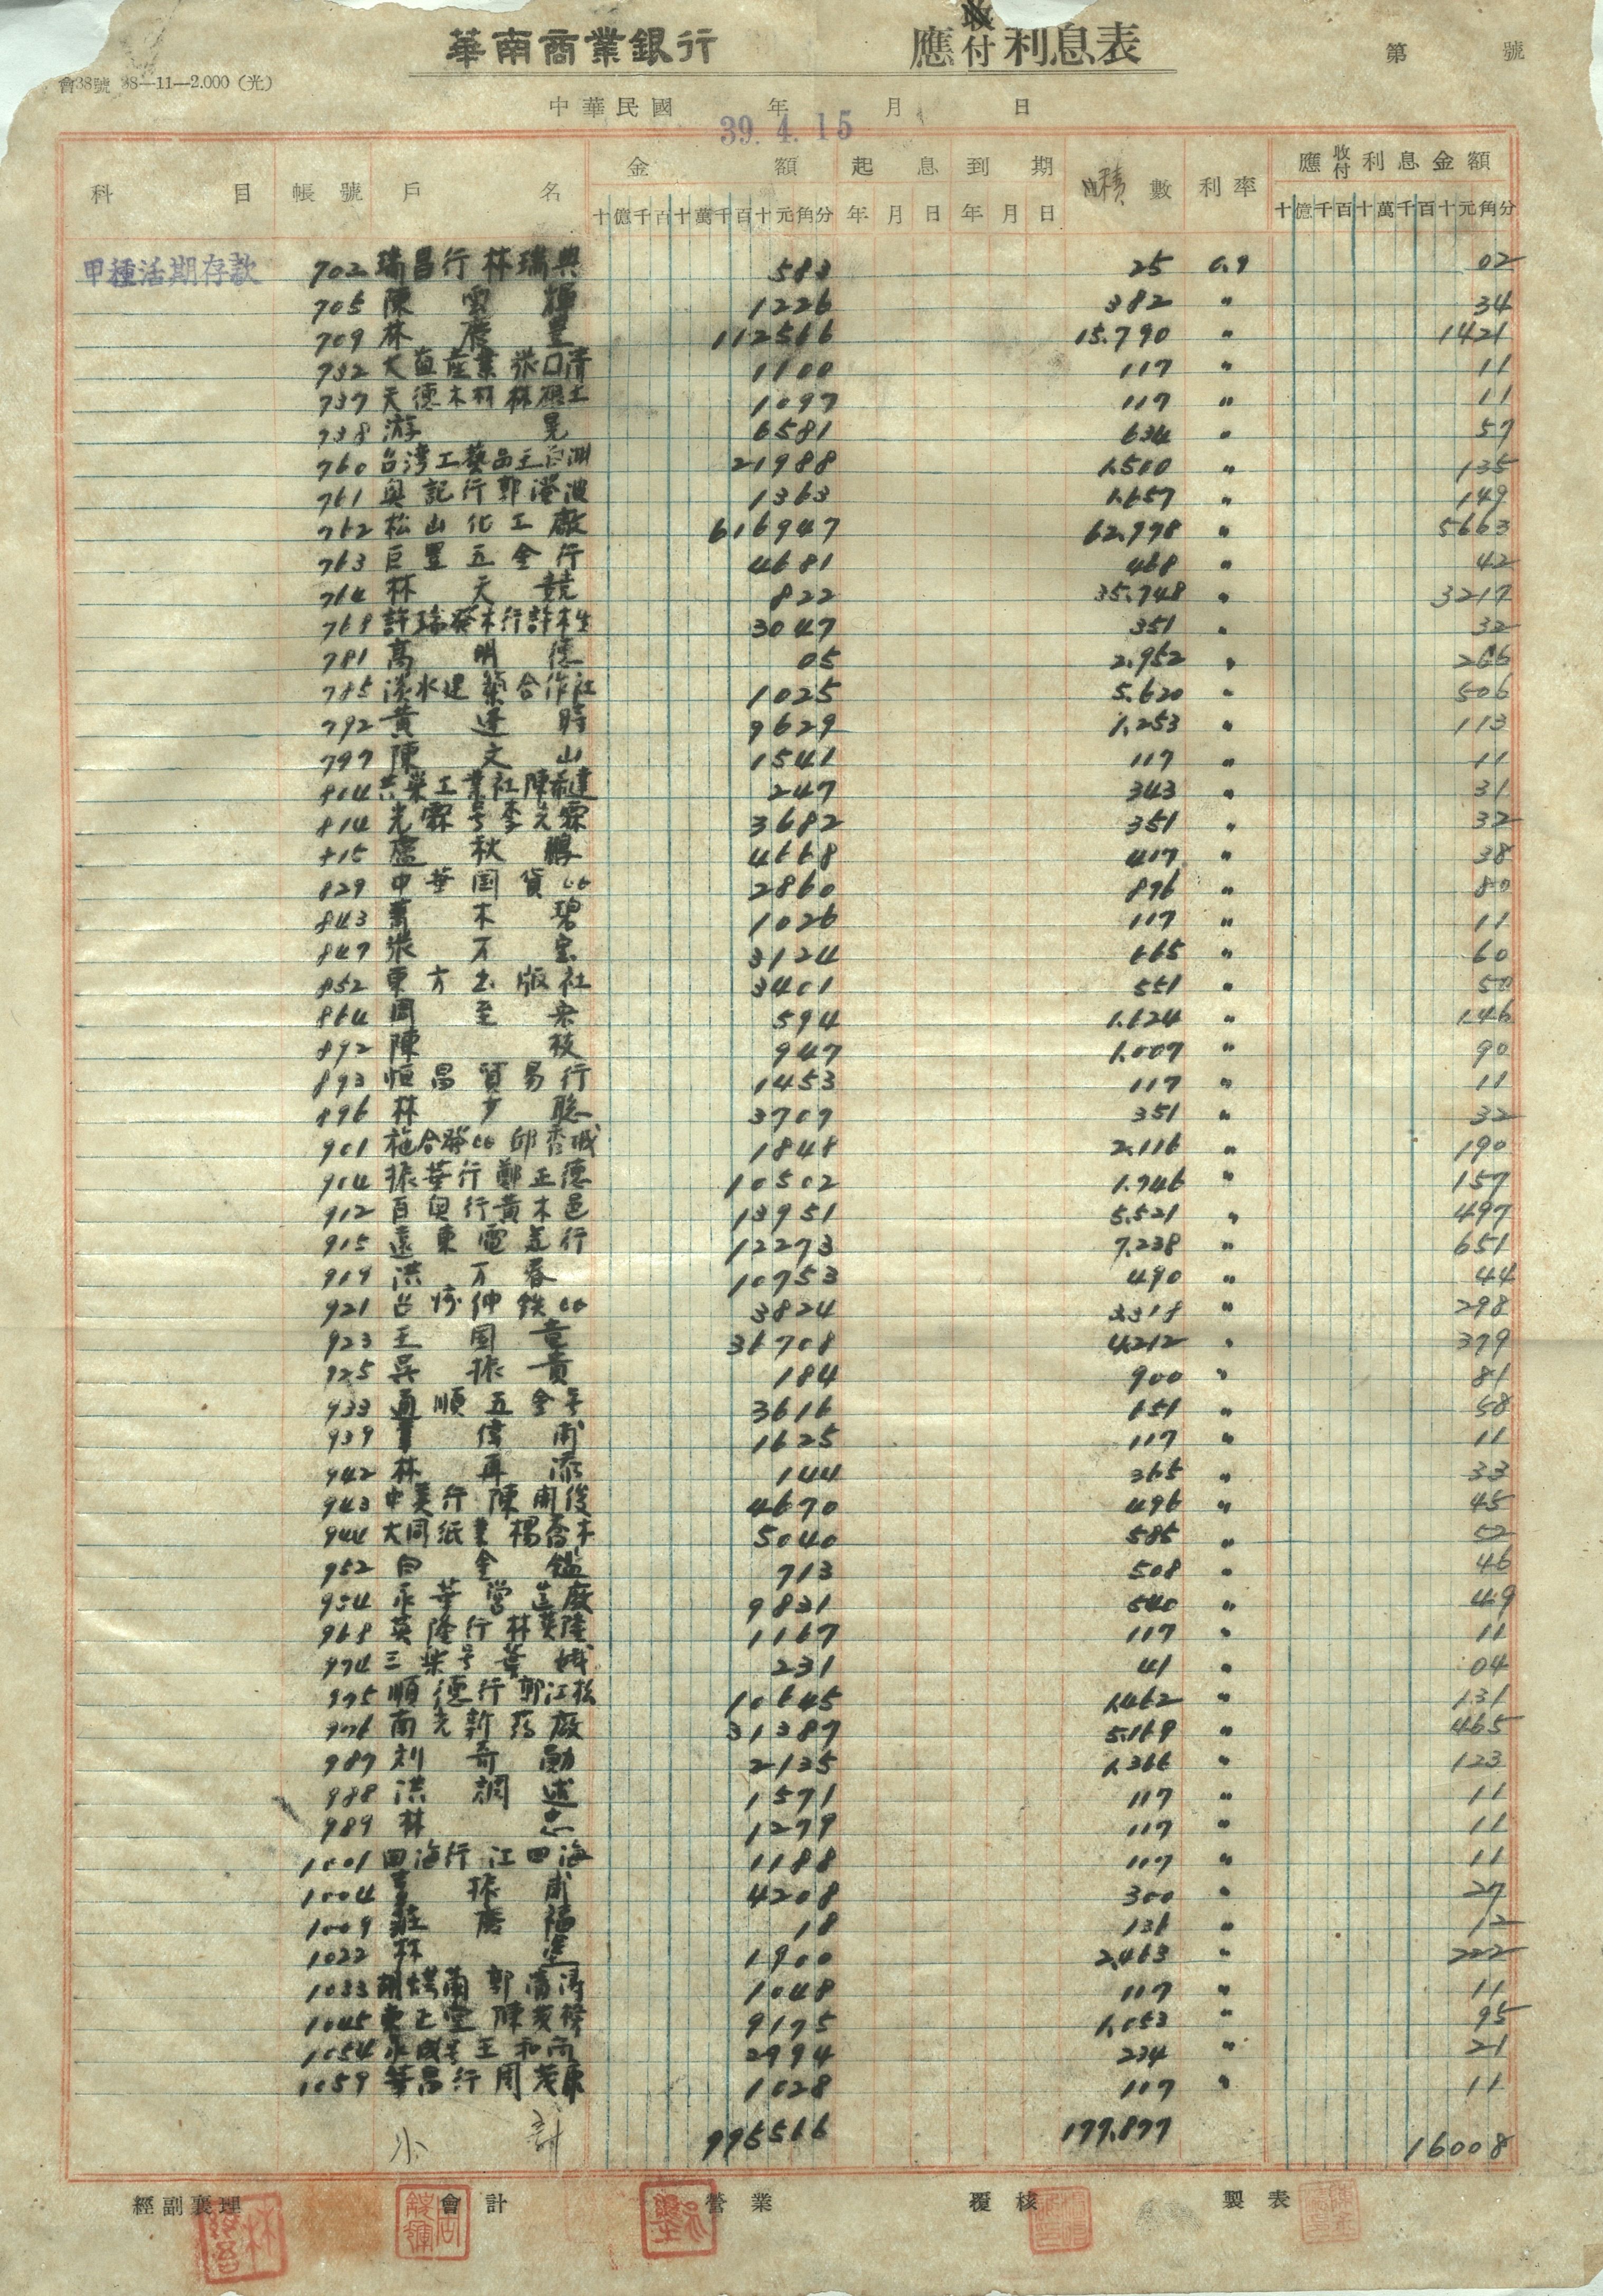 華南商業銀行 應收付利息表 第 號
會38號 38—11—2.000 (光)
中華民國 年 月 日
39. 4. 15
科目 帳號 戶名 金額 起息 到期 積數 利率 應收付利息金額
十億千百十萬千百十元角分 年月日 年月日 十億千百十萬千百十元角分
甲種活期存款 702 瑞昌行林瑞興 583 25 0.9 02
705 陳雲輝 1226 382 〃 34
709 林慶豊 112566 15.790 〃 1421
732 大直產業張口清 1100 117 〃 11
737 天德木材林 土 1097 117 〃 11
738 游晃 6581 634 〃 57
760 台湾工藝品王白渊 21988 1.510 〃 135
761 奥記行郭 波 1363 1.657 〃 149
762 松山化工廠 616947 62.998 〃 5663
763 巨豐五金行 4681 468 〃 42
764 林天競 822 35.748 〃 3217
768 許瑞發木行許木生 3047 351 〃 32
781 高明德 05 2.952 〃 266
785 淡水建築合作社 1025 5.620 〃 506
792 黃逢時 9629 1.253 〃 113
797 陳文山 1541 117 〃 11
804 共榮工業社陳希達 247 343 〃 31
814 光霖号李光霖 3682 351 〃 32
815 盧秋鵬 4668 417 〃 38
829 中華国貨co 2860 896 〃 80
843 蕭木碧 1026 117 〃 11
847 張万宝 3124 665 〃 60
852 東方出版社 3401 551 〃 50
864 周至柔 594 1.624 〃 146
892 陳枝 947 1.007 〃 90
893 恒昌貿易行 1453 117 〃 11
896 林才聪 3709 351 〃 32
901 施合發co邱秀城 1848 2.116 〃 190
904 振華行鄭正德 10502 1.746 〃 157
912 百奥行黃木邑 13951 5.521 〃 497
915 遠東電 行 12273 7.238 〃 651
919 洪万春 10753 490 〃 44
921 台湾伸鉄co 3824 3.318 〃 298
923 王国章 36708 4.212 〃 379
925 吳振貴 184 900 〃 81
933 通順五金号 3616 651 〃 58
939 偉甫 1625 117 〃 11
942 林再添 144 365 〃 33
943 中美行陳開俊 4670 496 〃 45
944 大同紙業楊喬木 5040 585 〃 52
952 白金鑑 713 508 〃 46
954 永華營造廠 9831 540 〃 49
968 英隆行林英隆 1167 117 〃 11
974 三榮号葉城 231 41 〃 04
975 順德行郭江松 10645 1.462 〃 131
976 南光新葯廠 31387 5.169 〃 465
987 刘奇勛 2135 1.366 〃 123
988 洪調述 1571 117 〃 11
989 林忠 1279 117 〃 11
1001 四海行江四海 1188 117 〃 11
1004 振甫 4208 300 〃 27
1009 莊慶福 18 136 〃 12
1022 林 1900 2.463 〃 222
1033 郭 1048 117 〃 11
1045 東正堂陳 9175 1.053 〃 95
1054 永成号王和尚 2994 234 〃 21
1059 華昌行周茂 1028 117 〃 11
小計 995566 177.877 16008
經副襄理 會計 營業 覆核 製表